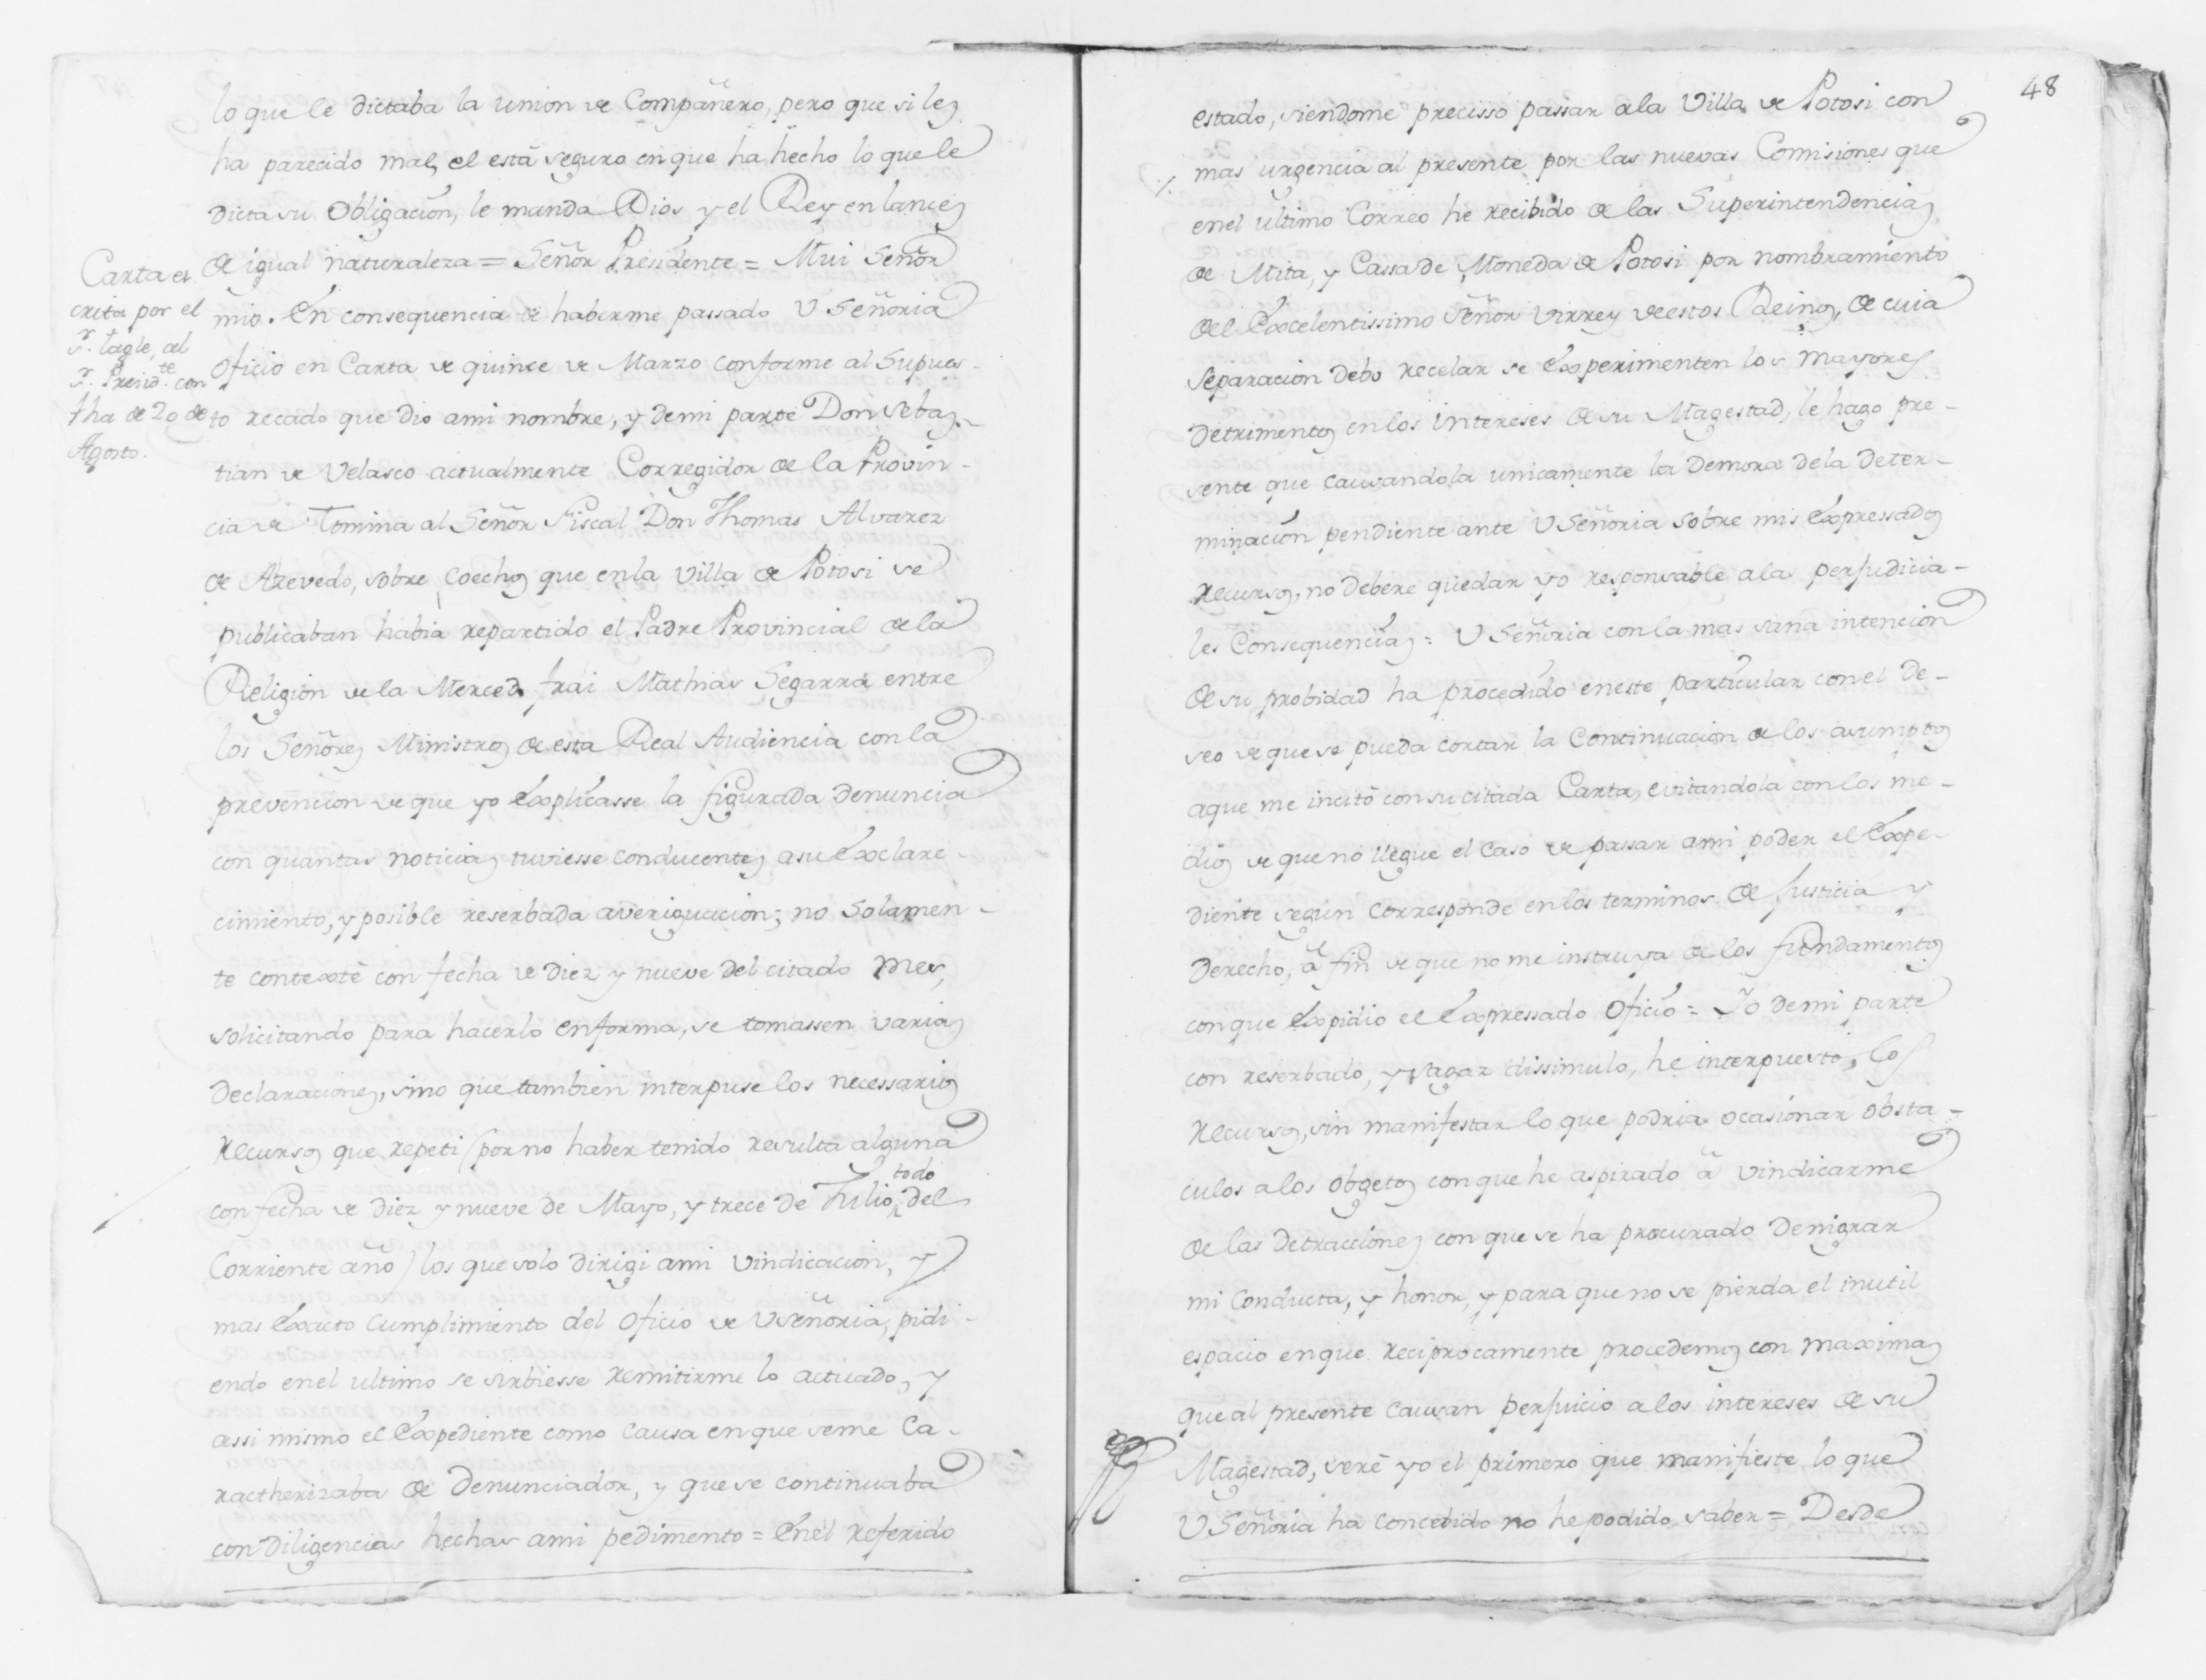 lo que le dictaba la union de Compañero, pero que si les
ha parecido mal, el està seguro en que ha hecho lo que le
dicta su Obligacion, le manda Dios y el Rey en lances
de igual naturaleza = Señor Presidente = Mui Señor
Carta es
crita por el
sr. Tagle, al
sr. Presidte. con
fha de 20 de
Agosto.
mio. En consequencia de haberme passado V Señoria
Oficio en Carta de quince de Marzo conforme al Supues-
to recado que dio ami nombre, y demi parte Don Sebas-
tian de Velasco actualmente Corregidor de la Provin-
cia de Tomina al Señor Fiscal Don Thomas Alvarez
de Azevedo, sobre coechos que enla Villa de Potosi se
publicaban habia repartido el Padre Provincial dela
Religion de la Merced frai Mathias Segarra entre
los Señores Ministros de esta Real Audiencia con la
prevencion de que yo explicasse la figurada denuncia
con quantas noticias tuviesse conducentes asu exclare-
cimiento, y posible reserbada averiguacion; no solamen-
te contextè con fecha de diez y nueve del citado mes,
solicitando para hacerlo enforma, se tomassen varias
declaraciones, sino que tambien interpuse los necessarios
recursos que repeti (por no haber tenido resulta alguna
con fecha de diez y nueve de Mayo, y trece de Julio, todo del
Corriente año) los que solo dirigi ami vindicacion, y
mas exacto cumplimiento del oficio de VSeñoria, pidi-
endo enel ultimo se sirbiesse remitirme lo actuado, y
assi mismo el expediente como causa enque seme ca-
ractherizaba de denunciador, y que se continuaba
con diligencias hechas ami pedimento = Enel referido
48
estado, siendome precisso passar ala Villa de Potosi con
mas urgencia al presente por las nuevas Comisiones que
enel ultimo Correo he recibido de las Superintendencias
de Mita, y Cassa de Moneda de Potosi por nombramiento
del Excelentissimo Señor Virrey de estos Reinos, de cuia
separacion debo recelar se experimenten los mayores
detrimentos en los intereses de su Magestad, le hago pre-
sente que causandola unicamente la demora dela deter-
minacion pendiente ante VSeñoria sobre mis expressados
recursos, no debere quedar yo responsable alas perjudicia-
les Consequencias: VSeñoria con la mas sana intencion
de su probidad ha procedido eneste particular con el de-
seo de que se pueda cortar la continuacion de los asumptos
aque me incitò con su citada Carta, evitandola con los me-
dios de que no llegue el caso de passar ami poder el expe-
diente segun corresponde en los terminos de Justicia y
derecho, à fin de que no me instruya de los fundamentos
con que expidio el expressado oficio = Yo demi parte
con reserbado, y sagaz dissimulo, he interpuesto, los
recursos, sin manifestar lo que podria ocasionar obsta-
culos a los obgetos con que he aspirado à vindicarme
de las detracciones con que se ha procurado denigrar
mi conducta, y honor, y para que no se pierda el inutil
espacio enque reciprocamente procedemos con maximas
que al presente causan perjuicio a los intereses de su
Magestad, serè yo el primero que manifieste lo que
VSeñoria ha concebido no he podido saber = Desde